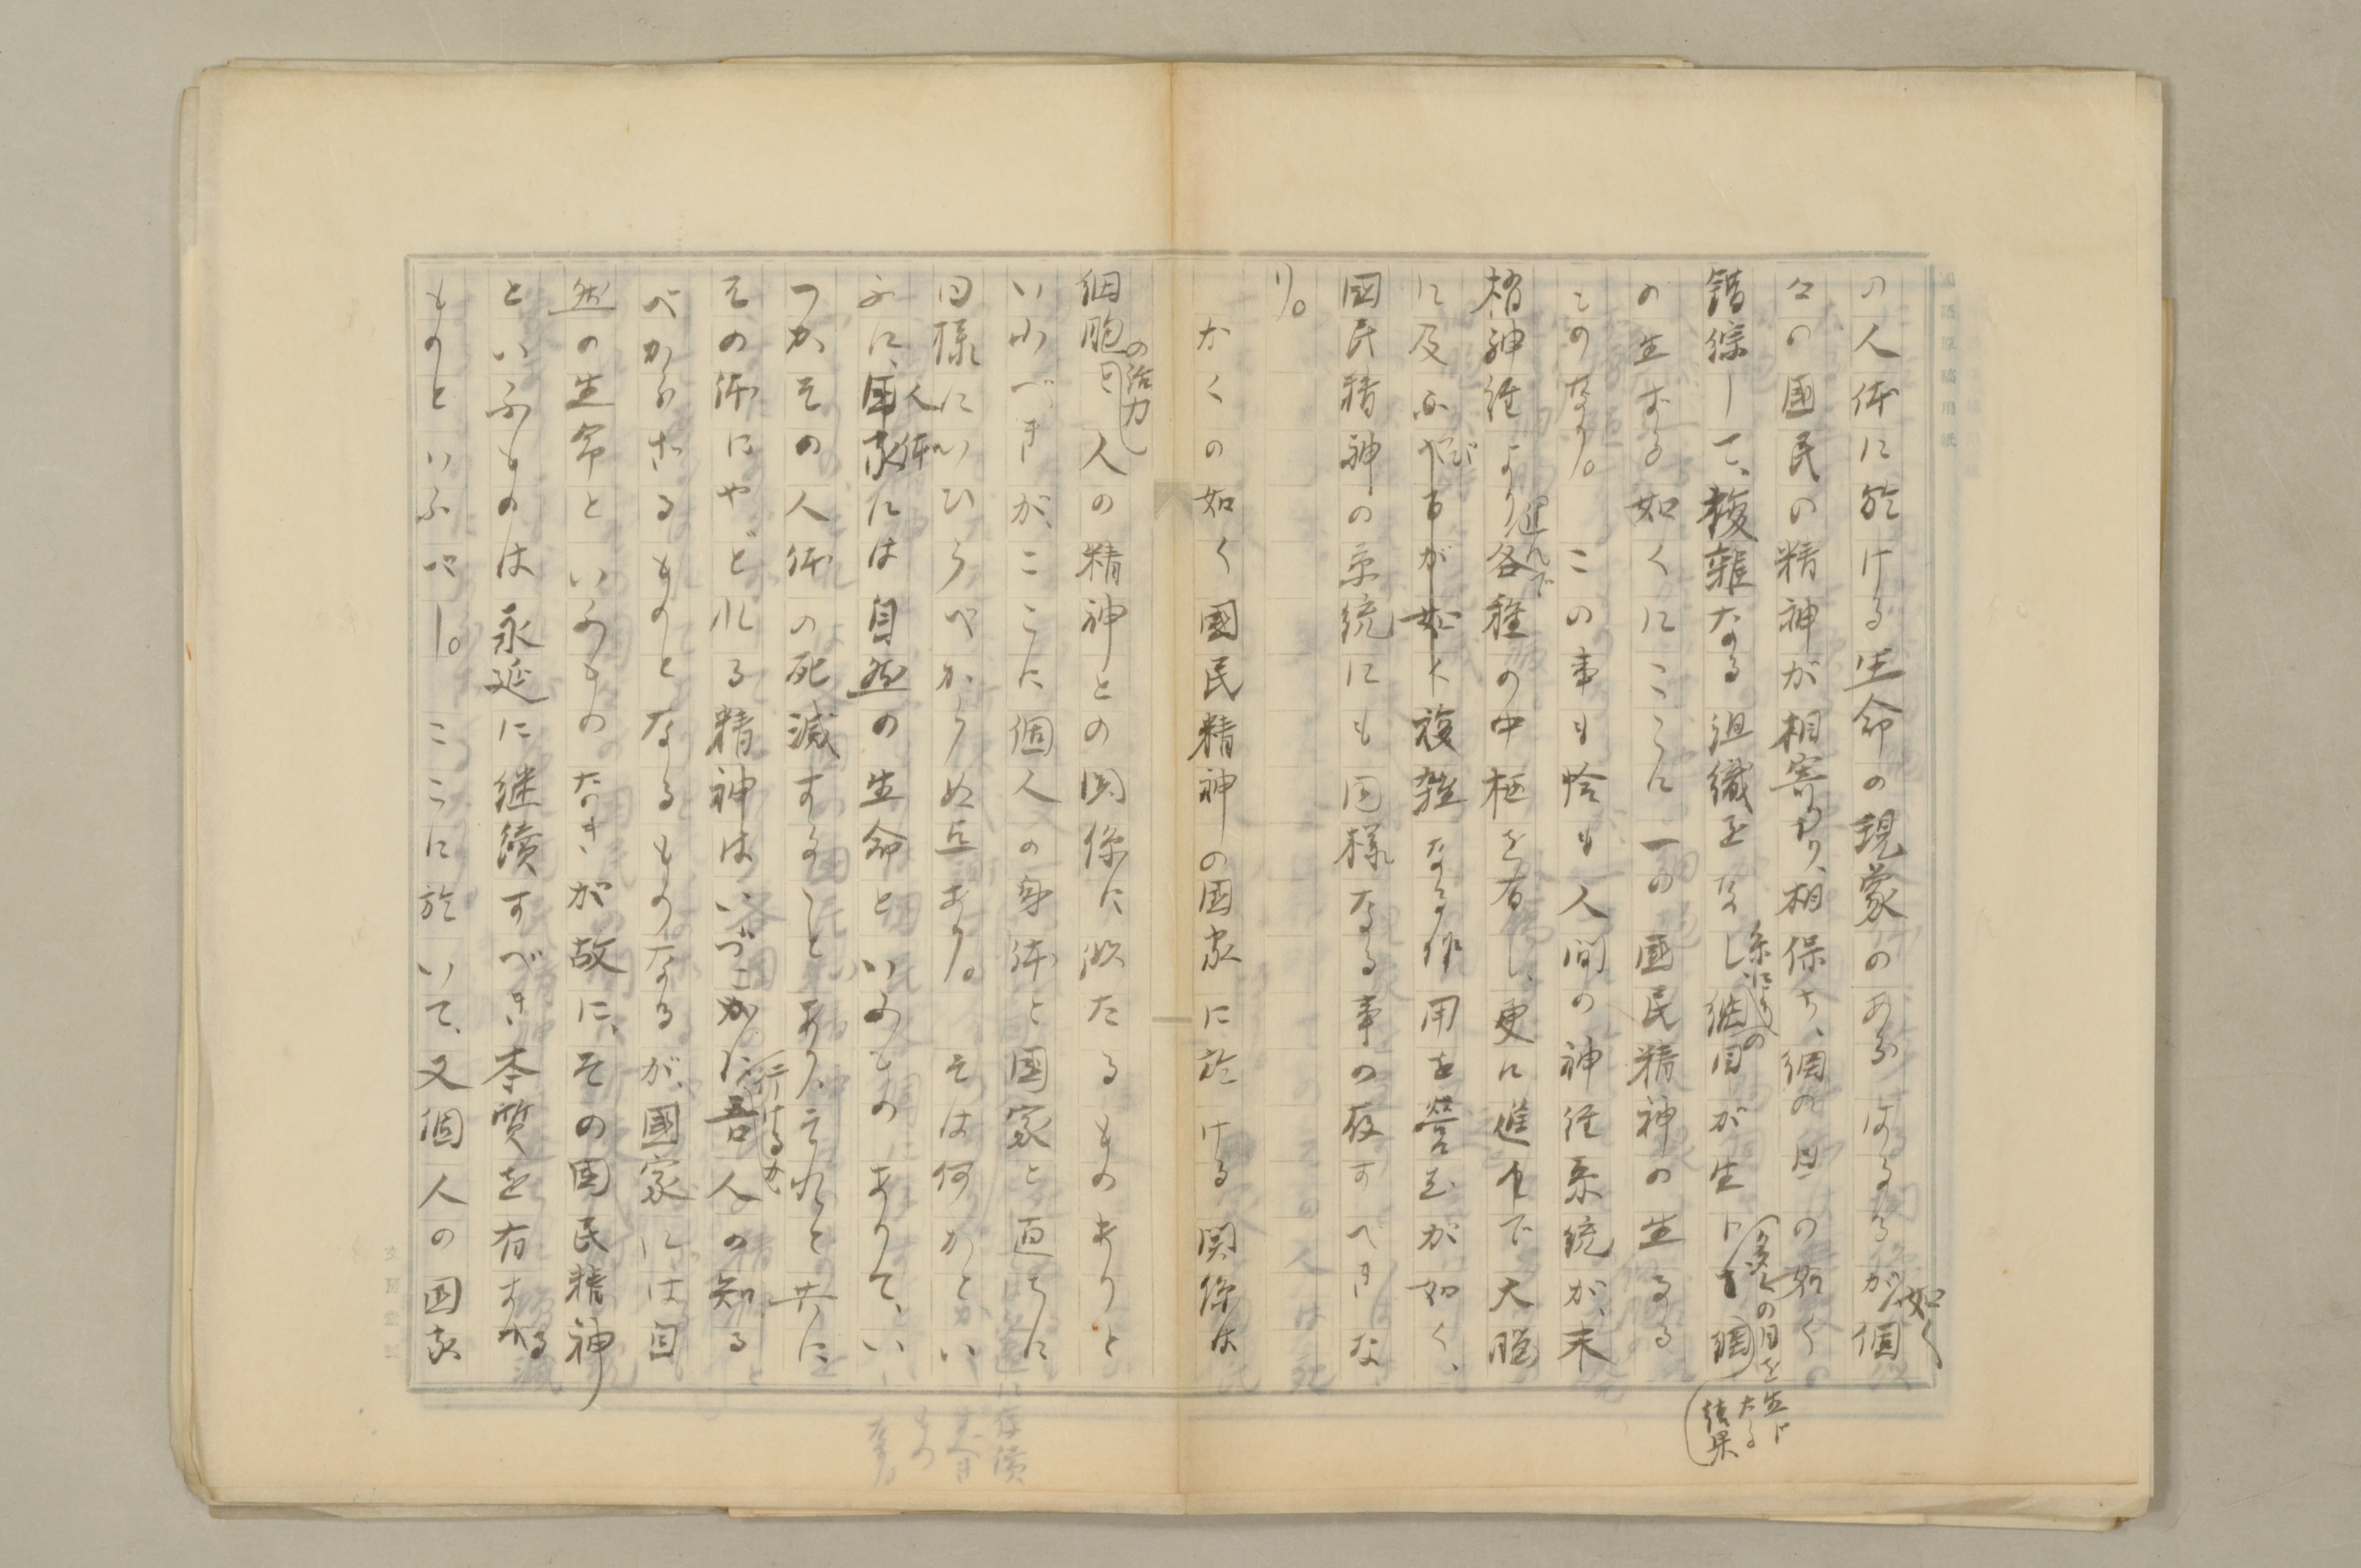 の人体に於ける生命の現象のあらはるるが如く個
々の國民の精神が相寄り、相保ち、網の目の如く
錯綜して、複雑なる組織をなし
の生ずる如くにここに一の國民精神の生るる
ものなり。この事も恰も人間の神経系統が、末
梢神経より進んで各種の中枢を有し、更に進んで大脳
に及び複雑なる作用を營むが如く、
國民精神の系統にも同様なる事の存すべきな
り。
かくの如く國民精神の国家に於ける関係は
細胞の活力と人の精神との関係に似たるものありと
いふべきが、ここに個人の身体と國家と直ちに
同様にいひうべからぬ点あり。そは何かとい
ふに、人体には自然の生命といふものありて、い
つかその人体の死滅することあり、それと共に
その体にやどれる精神はいづこかに行けるか吾人の知る
べからざるものとなるものなるが、國家には自
然の生命といふものなきが故に、その国民精神
といふものは永延に継續すべき本質を有する
ものといふべし。ここに於いて、又個人の国家